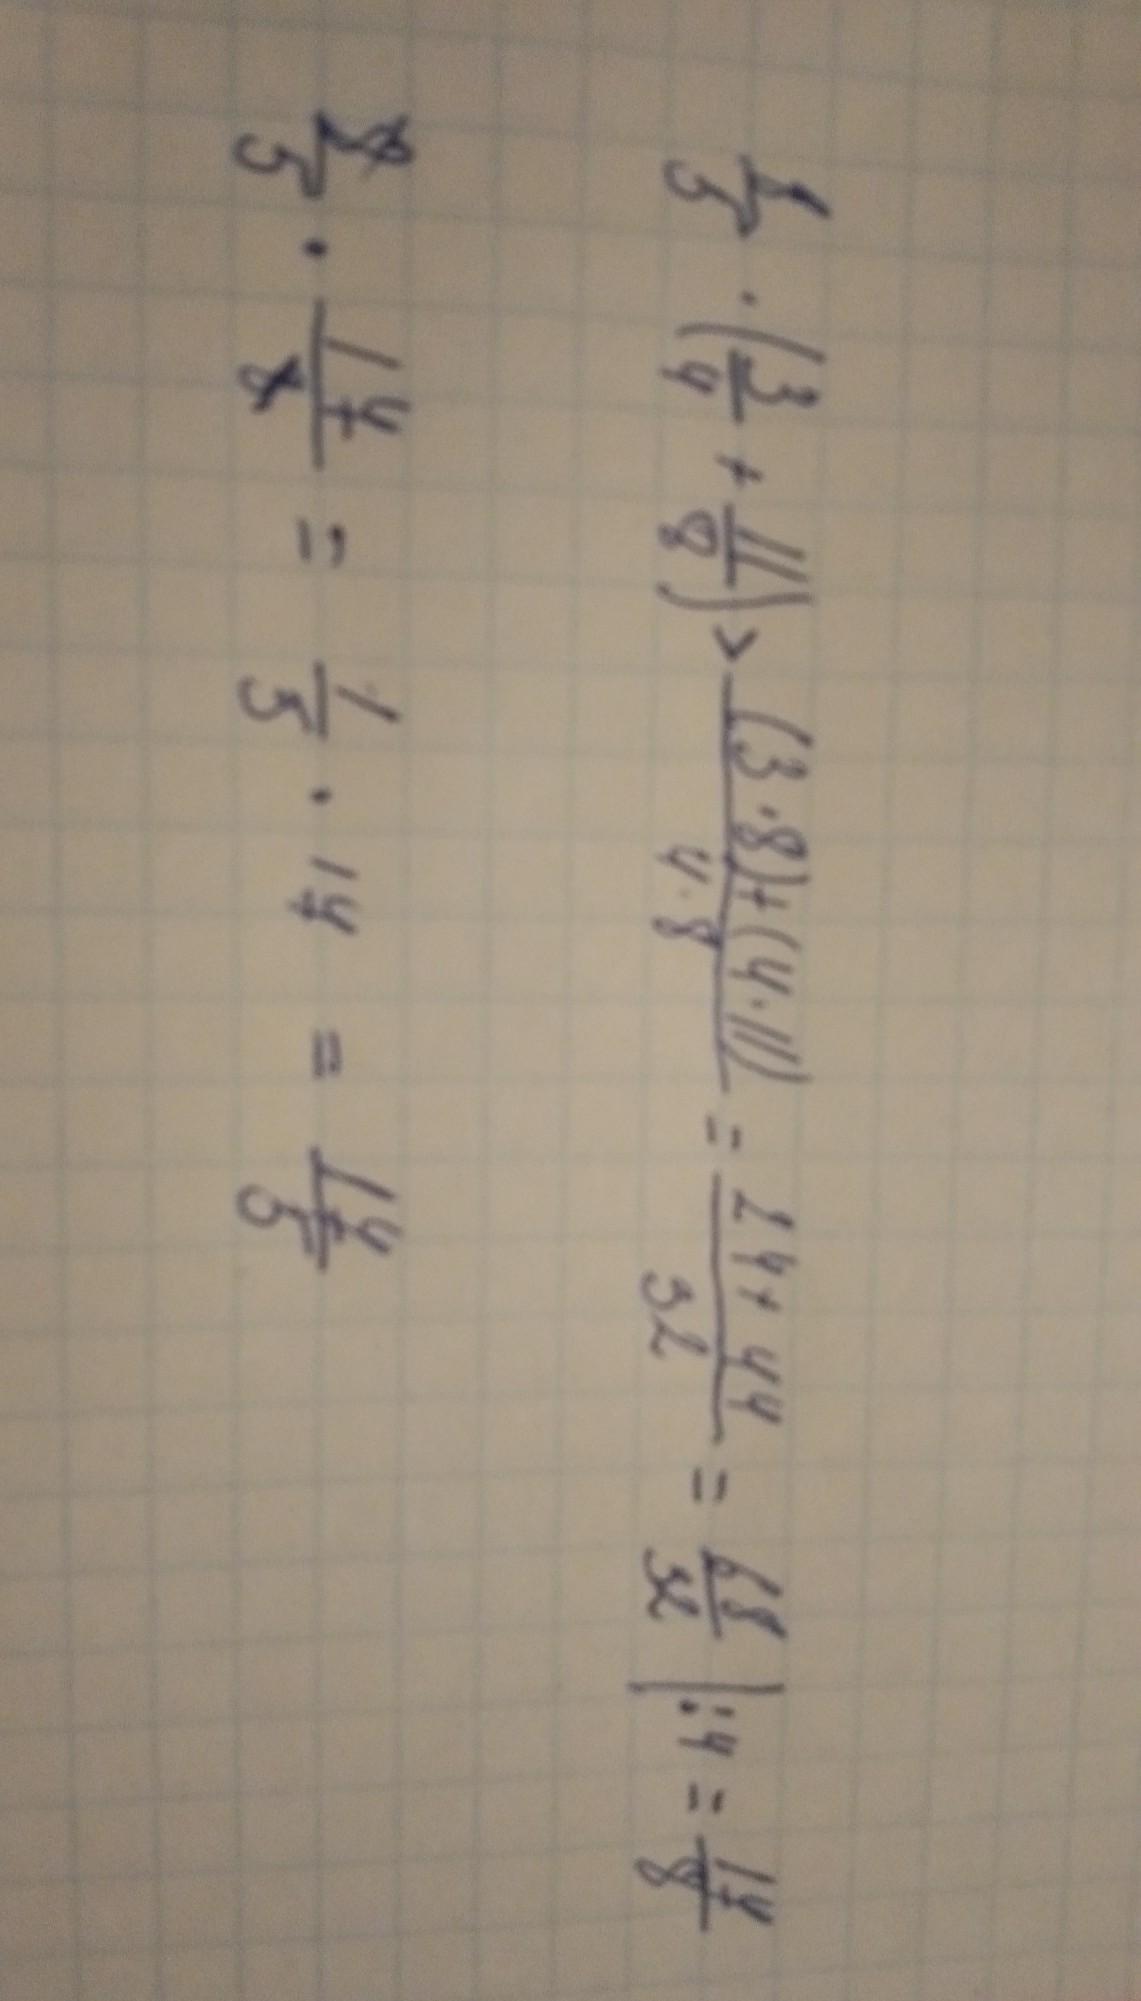 8/5 · (3/4 + 11/8) > ((3·8)+(4·11))/(4·8) = (24+44)/32 = 68/32 |:4 = 17/8
8/5 · 17/8 = 1/5 · 17 = 17/5